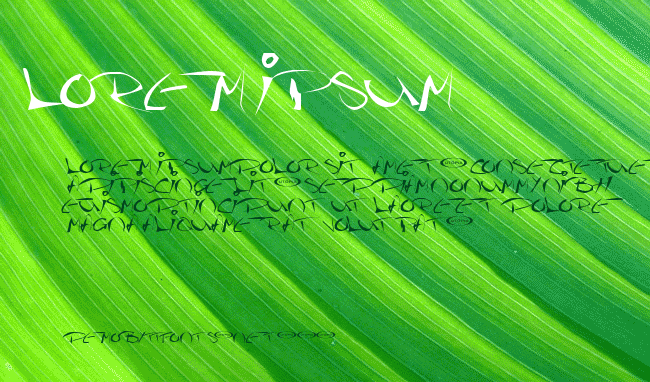 LOREM IPSUM
LOREM IPSUM DOLOR SIT AMET CONSECTETUE
ADIPISCING ELIT SED DIAM NONUMMY NIBH
EUISMOD TINCIDUNT UT LAOREET DOLORE
MAGNA ALIQUAM ERAT VOLUTPAT
DEMO BY FFONTS.NET